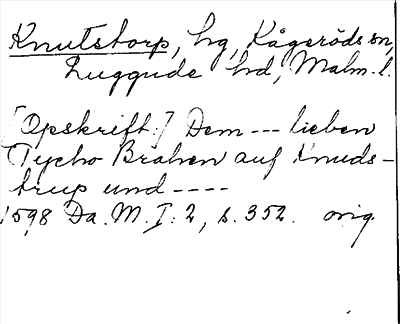 Knutstorp, hg, Kågeröds sn,
Luggude hd, Malm. l.
[Opskrift:] Dem --- lieben
Tycho Brahen auf Knuds-
trup und ----
1598 Da. M. I: 2, s. 352. orig.